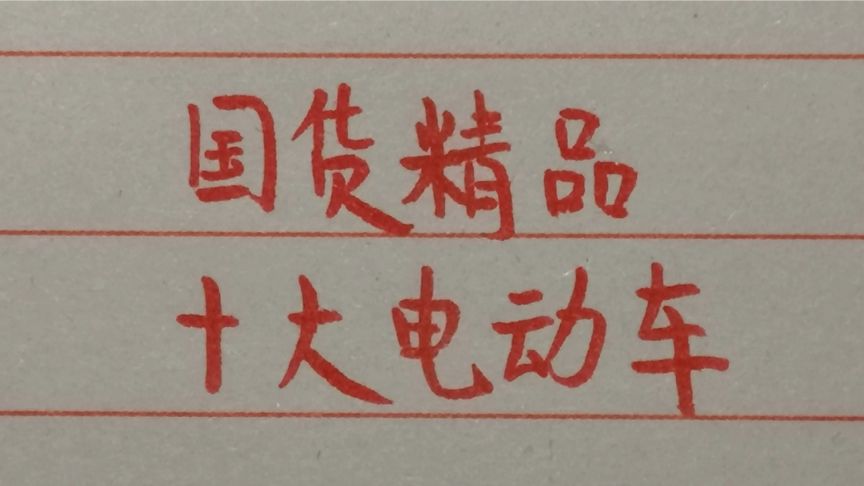 国货精品
十大电动车